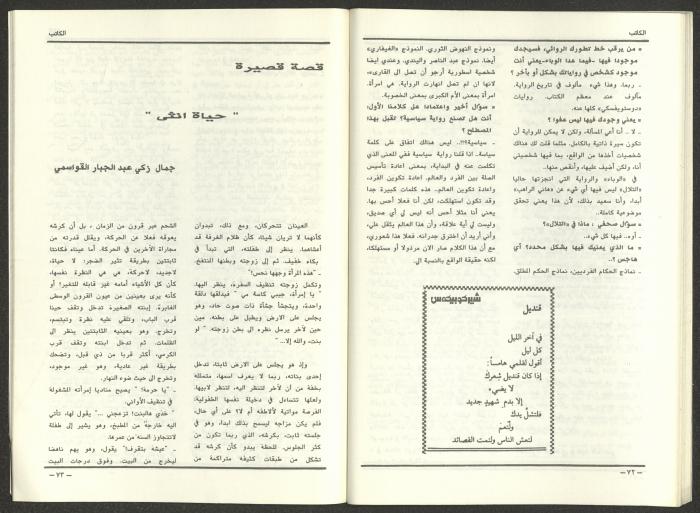 الكاتب
» من يرقب خط تطورك الروائي، فسيجدك
موجودا فيها -فيما عدا الوباء-يعني أنت
موجود كشخص في رواياتك بشكل أو بآخر ؟
ـ ربما. وهذا شيء مألوف في تاريخ الرواية.
مألوف عند معظم الكتاب. روايات
«دوستويفسكي» كلها عنه.
» يعني وجودك فيها ليس عفوا ؟
ـ لا .. أنا أعي المسألة، ولكن لا يمكن للرواية أن
تكون سيرة ذاتية بالكامل. مثلما قلت لك هناك
شخصيات أخذها من الواقع، بما فيها شخصيتي
أنا، ولكن أضيف عليها، وأنقص منها..
في «الوباء» والرواية التي انجزتها حاليا
«التلال» ليس فيها أي شيء من «هاني الراهب»
أبدا. وأنا سعيد بذلك، لأن هذا يعني تحقق
موضوعية كاملة..
» سؤال صحفي : ماذا في «التلال»؟
ـ أوه.. فيها كل شيء.
» ما الذي يعنيك فيها بشكل محدد؟ أي
هاجس ؟..
ـ نماذج الحكام الفرديين، نماذج الحكم المطلق.
ونموذج النهوض الثوري. النموذج «الغيفاري»
أيضا. نموذج عبد الناصر والبندي. وعندي أيضا
شخصية اسطورية أرجو أن تصل الى القارىء،
لانها ان لم تصل انهارت الرواية. هي امرأة.
امرأة بمعنى الأم الكبرى بمعنى الخصوبة.
» سؤال أخير واعتمادا على كلامنا الأول،
أنت هل تصنع رواية سياسية؟ تقبل بهذا
المصطلح ؟
ـ سياسية؟!!.. ليس هناك اتفاق على كلمة
سياسة.. اذا قلنا رواية سياسية ففي المعنى الذي
تكلمت عنه في البداية، بمعنى اعادة تأسيس
الصلة بين الفرد والعالم. اعادة تكوين الفرد،
واعادة تكوين العالم.. هذه كلمات كبيرة جدا
وقد تكون استهلكت، لكن أنا فعلا أحس بها.
يعني أنا مثلا أحس أنه ليس لي أي صديق،
وليست لي أية علاقة، وأن هذا العالم يثقل علي،
وأني أريد أن اخترق جدرانه. فعلا هذا شعوري،
مع أن هذا الكلام صار الان مرذولا أو مستهلكا،
لكنه حقيقة الواقع بالنسبة الي.
شيركو بيكه س
قنديل
في آخر الليل
كل ليل
أقول لقلمي هامساً:
إذا كان قنديل شِعرك
لا يضيء
إلا بدم شهيدٍ جديد
فلتشلّ يدك
ولتُعمَ
لتعش الناس ولتمت القصائد
ـ ٧٢ ـ
الكاتب
قصة قصيرة
" حياة انثى "
جمال زكي عبد الجبار القواسمي
العينان تتحركان، ومع ذلك، تبدوان
كأنهما لا تريان شيئا، كأن ظلام الغرفة قد
أعشاهما. ينظر إلى طفلته، التي تبدأ في
بكاء خفيف. ثم إلى زوجته وبطنها المنتفخ.
ـ "هذه المرأة وجهها نحس!"
وتكمل زوجته تنظيف السفرة، ينظر اليها.
ـ " يا إمرأة، جيبي كاسة مي " فيدلقها دلقة
واحدة، ويتجشأ جشأة ذات صوت حاد، وهو
يجلس على الارض ويطبل على بطنه. مين
حين لآخر يرمل نظره الى بطن زوجته. " لو
بنت، والله إلا... "
وإذ هو يجلس على الارض ثابتا، تدخل
إحدى بناته، ربما لا يعرف اسمها، متململة
بخفة من أن لآخر لتنظر اليه، لتنظر لابيها،
ولعلها تتساءل في دخيلة نفسها الطفولية:
الفرصة مواتية لألاطفه أم لا؟ على أي حال،
فلم يكن مزاجه ليسمح بذلك ابدا، وهو في
جلسته ثابت، بكرشه، الذي ربما تكون من
كثر الجلوس. للحظة يبدو كأن كرشه قد
تشكل من طبقات كثيفة متراكمة من
الشحم عبر قرون من الزمان ، بل أن كرشه
يعوقه فعلا عن الحركة، ويقلل قدرته من
مجاراة الآخرين في الحركة. أما عيناه فكانتا
ثابتتين بطريقة تثير الضجر: لا حياة،
لاجديد، لاحركة، هي هي النظرة نفسها،
كأن كل الأشياء أمامه غير قابلة للتغير! أو
كأنه يرى بعينين من عيون القرون الوسطى
الغابرة. إبنته الصغيرة تدخل وتقف حينا
قرب الباب، وتلقي عليه نظرة وتبتسم،
وتخرج. وهو بعينيه الثابتتين ينظر الى
الظلمات. ثم تدخل ابنته وتقف قرب
الكرسي، أكثر قربا من ذي قبل، وتضحك
بطريقة غير عادية، وهو غير موجود،
وتخرج الى حيث ضوء النهار.
ـ "يا حرمة! " يصيح مناديا إمرأته المشغولة
في تنظيف الأواني.
" خذي هالبنت! تزعجني ..." يقول لها، تأتي
اليه خارجةً من المطبخ، وهو يشير إلى طفلة
لاتتجاوز السنه من عمرها.
ـ "عيشة بتقرف!" يقول، وهو يهم ناهضا
ليخرج من البيت. وفوق درجات البيت
ـ ٧٣ ـ